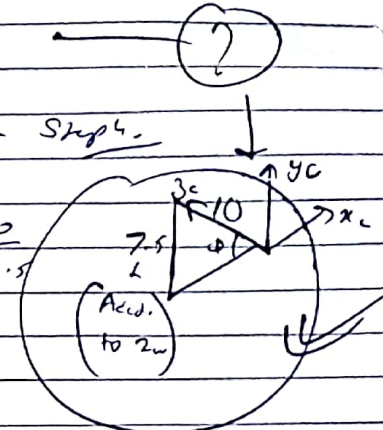 ?
Step 4.
yc
zc 10
xc
7.5 φ
.5
(Accd.
to zw)